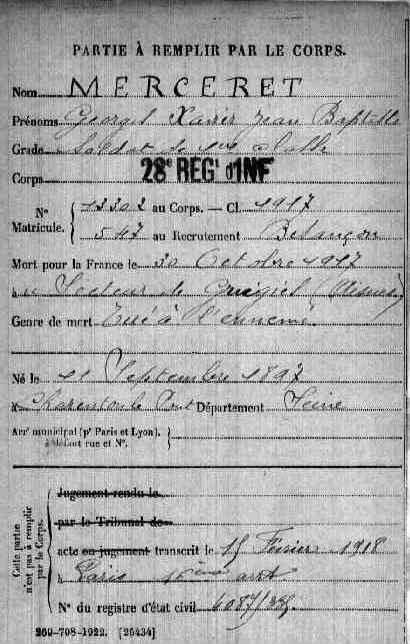 PARTIE À REMPLIR PAR LE CORPS.
Nom MERCERET
Prénoms Georges Xavier Jean Baptiste
Grade Soldat de 1re classe
Corps 28e RÉGt d'INF
No Matricule. 13302 au Corps. — Cl. 1917
547 au Recrutement Besançon
Mort pour la France le 30 Octobre 1917
au Secteur de (Aisne)
Genre de mort Tué à l'ennemi
Né le 11 Septembre 1897
à Charenton le Pont Département Seine
Arrt municipal (pr Paris et Lyon),
à défaut rue et No.
Cette partie n'est pas à remplir par le Corps.
Jugement rendu le
par le Tribunal de
acte en jugement transcrit le 15 Février 1918
à Paris arrt
No du registre d'état civil
269-708-1922. [26434]